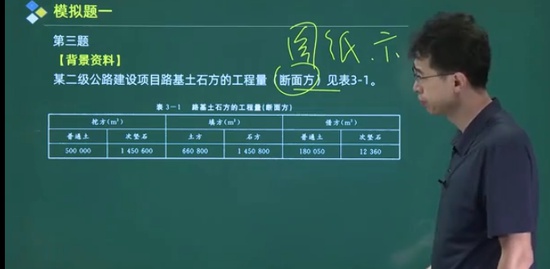 模拟题一
图纸示
第三题
【背景资料】
某二级公路建设项目路基土石方的工程量(断面方)见表3-1。
表 3-1 路基土石方的工程量(断面方)
挖方(m³) 填方(m³) 借方(m³)
普通土 次坚石 土方 石方 普通土 次坚石
500 000 1 450 600 660 800 1 450 800 180 050 12 360